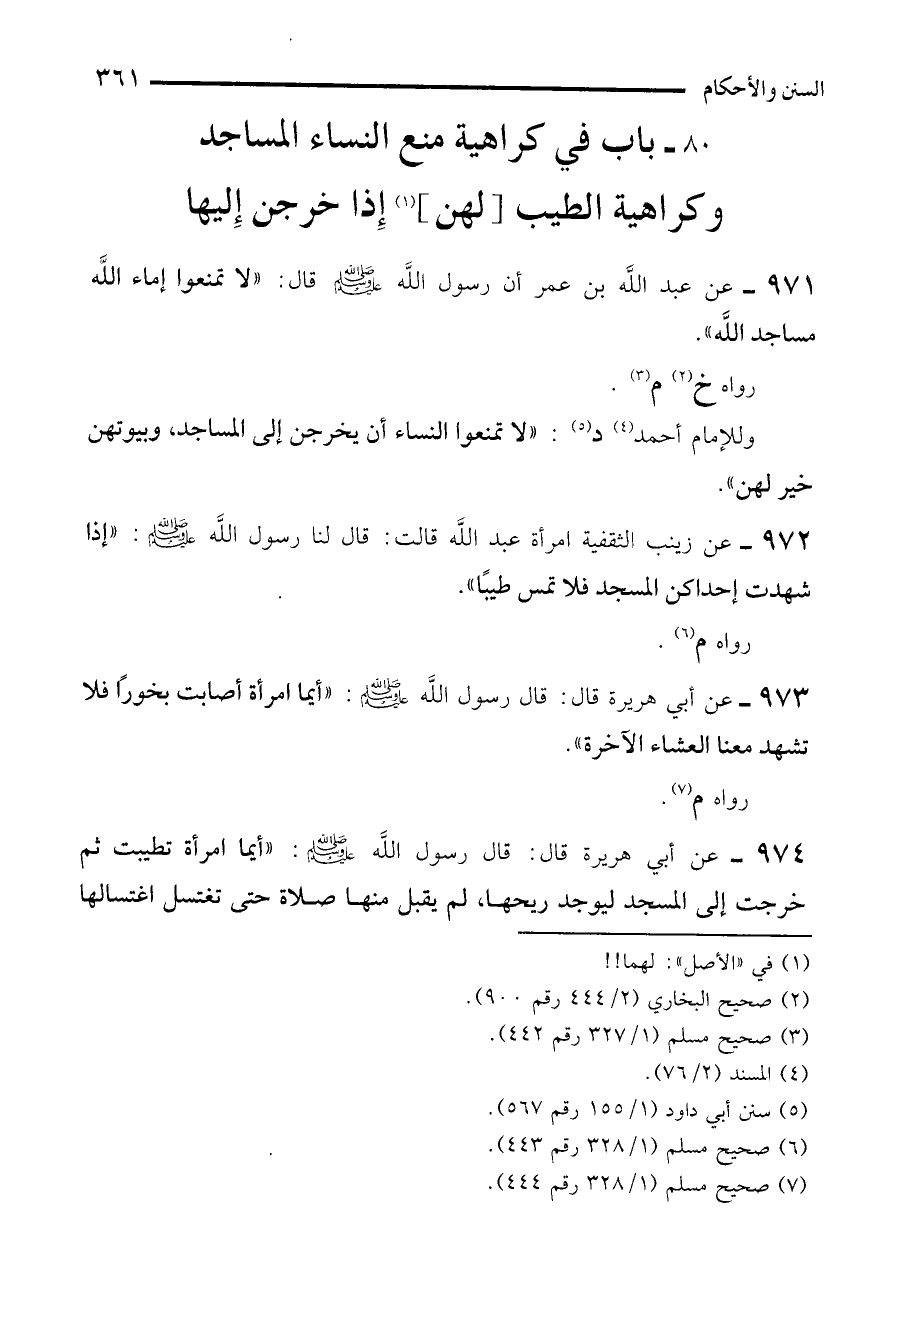 السنن والأحكام ٣٦١
٨٠ ـ باب في كراهية منع النساء المساجد
وكراهية الطيب [لهن](١) إِذا خرجن إِليها
٩٧١ ـ عن عبد اللَّه بن عمر أن رسول اللَّه ﷺ قال: «لا تمنعوا إماء اللَّه
مساجد اللَّه».
رواه خ(٢) م(٣) .
وللإمام أحمد(٤) د(٥) : «لا تمنعوا النساء أن يخرجن إلى المساجد، وبيوتهن
خير لهن».
٩٧٢ ـ عن زينب الثقفية امرأة عبد اللَّه قالت: قال لنا رسول اللَّه ﷺ : «إذا
شهدت إحداكن المسجد فلا تمس طيبًا».
رواه م(٦) .
٩٧٣ ـ عن أبي هريرة قال: قال رسول اللَّه ﷺ : «أيما امرأة أصابت بخوراً فلا
تشهد معنا العشاء الآخرة».
رواه م(٧).
٩٧٤ ـ عن أبي هريرة قال: قال رسول اللَّه ﷺ : «أيما امرأة تطيبت ثم
خرجت إلى المسجد ليوجد ريحها، لم يقبل منها صلاة حتى تغتسل اغتسالها
(١) في «الأصل»: لهما!!
(٢) صحيح البخاري (٢/ ٤٤٤ رقم ٩٠٠).
(٣) صحيح مسلم (١/ ٣٢٧ رقم ٤٤٢).
(٤) المسند (٢/ ٧٦).
(٥) سنن أبي داود (١/ ١٥٥ رقم ٥٦٧).
(٦) صحيح مسلم (١/ ٣٢٨ رقم ٤٤٣).
(٧) صحيح مسلم (١/ ٣٢٨ رقم ٤٤٤).